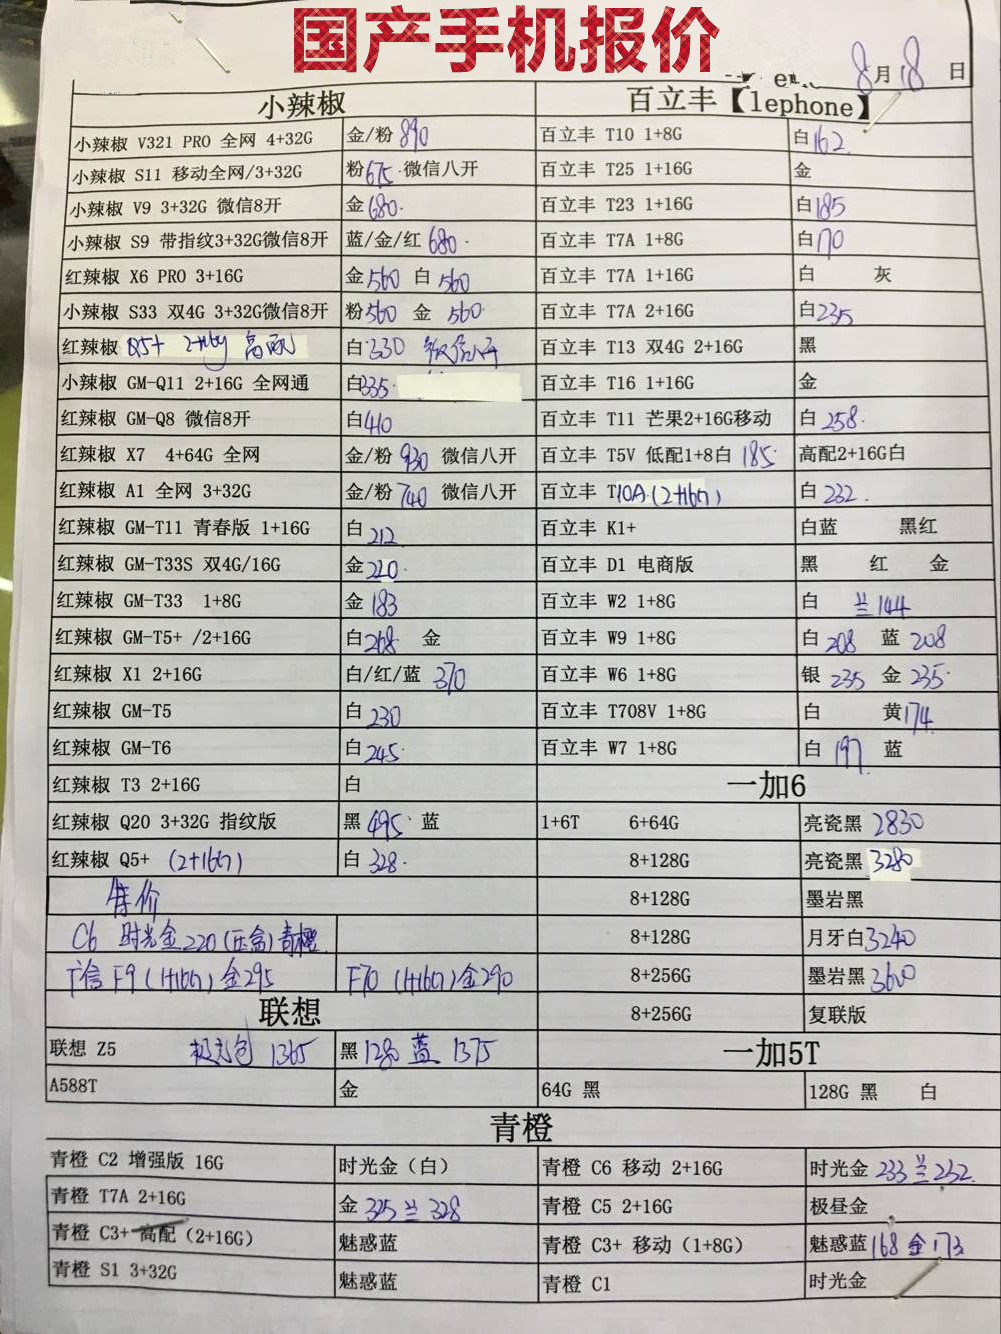 国产手机报价
8月18日
小辣椒 百立丰【lephone】
小辣椒 V321 PRO 全网 4+32G 金/粉 890 百立丰 T10 1+8G 白162
小辣椒 S11 移动全网/3+32G 粉675 微信八开 百立丰 T25 1+16G 金
小辣椒 V9 3+32G 微信8开 金680 百立丰 T23 1+16G 白185
小辣椒 S9 带指纹3+32G微信8开 蓝/金/红 680 百立丰 T7A 1+8G 白170
红辣椒 X6 PRO 3+16G 金560 白 560 百立丰 T7A 1+16G 白 灰
小辣椒 S33 双4G 3+32G微信8开 粉560 金 560 百立丰 T7A 2+16G 白235
红辣椒 Q5+ 2+16g 高配 白330 微信八开 百立丰 T13 双4G 2+16G 黑
小辣椒 GM-Q11 2+16G 全网通 白335 百立丰 T16 1+16G 金
红辣椒 GM-Q8 微信8开 白410 百立丰 T11 芒果2+16G移动 白 258
红辣椒 X7 4+64G 全网 金/粉 930 微信八开 百立丰 T5V 低配1+8白 185 高配2+16G白
红辣椒 A1 全网 3+32G 金/粉 740 微信八开 百立丰 T10A (2+16G) 白 232
红辣椒 GM-T11 青春版 1+16G 白 212 百立丰 K1+ 白蓝 黑红
红辣椒 GM-T33S 双4G/16G 金220 百立丰 D1 电商版 黑 红 金
红辣椒 GM-T33 1+8G 金 183 百立丰 W2 1+8G 白 兰144
红辣椒 GM-T5+ /2+16G 白268 金 百立丰 W9 1+8G 白 208 蓝 208
红辣椒 X1 2+16G 白/红/蓝 370 百立丰 W6 1+8G 银 235 金 235
红辣椒 GM-T5 白 230 百立丰 T708V 1+8G 白 黄174
红辣椒 GM-T6 白 245 百立丰 W7 1+8G 白 197 蓝
红辣椒 T3 2+16G 白 一加6
红辣椒 Q20 3+32G 指纹版 黑 495 蓝 1+6T 6+64G 亮瓷黑 2830
红辣椒 Q5+ (2+16G) 白 328 8+128G 亮瓷黑 3280
售价 8+128G 墨岩黑
C6 时光金220(压盒)青橙 8+128G 月牙白3240
广信F9(1+16G)金295 F70 (1+16G)金290 8+256G 墨岩黑3600
联想 8+256G 复联版
联想 Z5 极光色 1365 黑1280 蓝 1375 一加5T
A588T 金 64G 黑 128G 黑 白
青橙
青橙 C2 增强版 16G 时光金（白） 青橙 C6 移动 2+16G 时光金 233 兰232
青橙 T7A 2+16G 金 325 兰 328 青橙 C5 2+16G 极昼金
青橙 C3+ 高配（2+16G） 魅惑蓝 青橙 C3+ 移动（1+8G） 魅惑蓝168 金173
青橙 S1 3+32G 魅惑蓝 青橙 C1 时光金